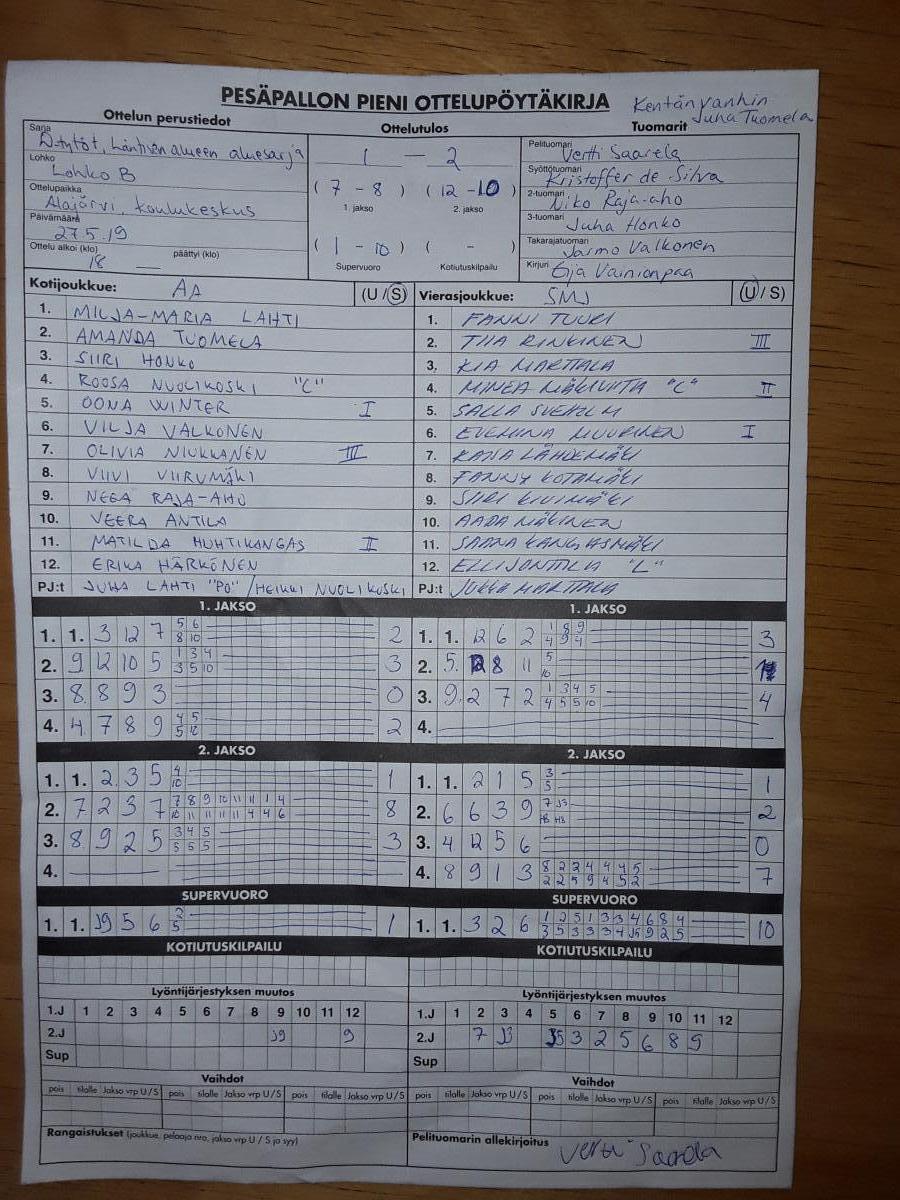 PESÄPALLON PIENI OTTELUPÖYTÄKIRJA
Kentänvanhin
Juha Tuomela
Ottelun perustiedot
Ottelutulos
Tuomarit
Sarja
D-tytöt, Läntisen alueen aluesarja
Lohko
Lohko B
Ottelupaikka
Alajärvi, koulukeskus
Päivämäärä
27.5.19
Ottelu alkoi (klo) päättyi (klo)
18 —
1 — 2
( 7 - 8 ) ( 12 - 10 )
1. jakso 2. jakso
( 1 - 10 ) ( - )
Supervuoro Kotiutuskilpailu
Pelituomari
Vertti Saarela
Syöttötuomari
Kristoffer de Silva
2-tuomari
Niko Raja-aho
3-tuomari
Juha Honko
Takarajatuomari
Jarmo Valkonen
Kirjuri
Eija Vainionpaa
Kotijoukkue: AA (U / S)
1. MILJA-MARIA LAHTI
2. AMANDA TUOMELA
3. SIIRI HONKO
4. ROOSA NUOLIKOSKI "C"
5. OONA WINTER I
6. VILJA VALKONEN
7. OLIVIA NIUKKANEN III
8. VIIVI VIIRUMÄKI
9. NEEA RAJA-AHO
10. VEERA ANTILA
11. MATILDA HUHTIKANGAS II
12. ERIKA HÄRKÖNEN
PJ:t JUHA LAHTI "PÖ" / HEIKKI NUOLIKOSKI
Vierasjoukkue: SMJ (U / S)
1. FANNI TUURI
2. TIIA RINKINEN III
3. KIA MARTTALA
4. MINEA "C" II
5. SALLA
6. EVELIINA MUURINEN I
7. KAISA LÄHDEMÄKI
8. FANNY KOTAMÄKI
9. SIIRI KIVIMÄKI
10. AADA MÄKINEN
11. SAANA KANGASMÄKI
12. ELLI JONTILA "L"
PJ:t JUKKA MARTTALA
1. JAKSO
1. 1. 3 12 7 5 6 2
8 10
2. 9 12 10 5 1 3 4 3
3 5 10
3. 8 8 9 3 0
4. 4 7 8 9 4 5 2
5 12
1. JAKSO
1. 1. 12 6 2 1 8 9 3
4 9 4
2. 5. 8 11 5
10
3. 9. 2 7 2 1 3 4 5 4
4 5 5 10
4.
2. JAKSO
1. 1. 2 3 5 4 1
10
2. 7 2 3 7 7 8 9 10 11 11 1 4 8
10 11 11 11 11 4 4 6
3. 8 9 2 5 3 4 5 3
5 5 5
4.
2. JAKSO
1. 1. 2 1 5 3 1
5
2. 6 6 3 9 7 J3 2
3. 4 12 5 6 0
4. 8 9 1 3 8 2 2 4 4 4 5 7
2 2 5 9 4 5 2
SUPERVUORO
1. 1. J9 5 6 2 1
5
SUPERVUORO
1. 1. 3 2 6 1 2 5 1 3 3 4 6 8 4 10
3 5 3 3 3 4 J5 9 2 5
KOTIUTUSKILPAILU
KOTIUTUSKILPAILU
Lyöntijärjestyksen muutos
1.J 1 2 3 4 5 6 7 8 9 10 11 12
2.J J9 9
Sup
Lyöntijärjestyksen muutos
1.J 1 2 3 4 5 6 7 8 9 10 11 12
2.J 7 J3 J5 3 2 5 6 8 9
Sup
Vaihdot
pois tilalle Jakso vrp U / S pois tilalle Jakso vrp U / S pois tilalle Jakso vrp U / S
Vaihdot
pois tilalle Jakso vrp U / S pois tilalle Jakso vrp U / S pois tilalle Jakso vrp U / S
Rangaistukset (joukkue, pelaaja nro, jakso vrp U / S ja syy)
Pelituomarin allekirjoitus
Vertti Saarela